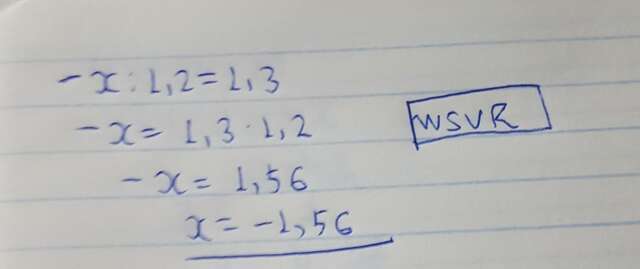 -x:1,2=1,3
-x=1,3·1,2
WSVR
-x=1,56
x=-1,56